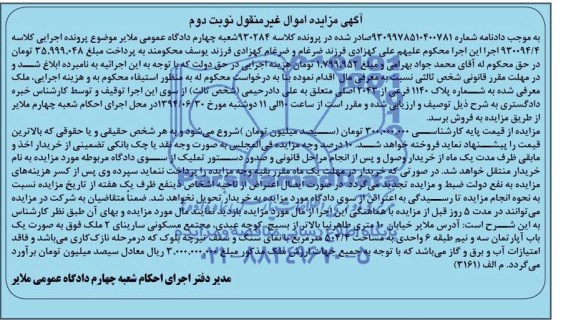 آگهی مزایده اموال غیرمنقول نوبت دوم
به موجب دادنامه شماره ۹۳۰۹۹۷۸۵۱۰۴۰۰۷۸۱صادر شده در پرونده کلاسه ۹۳۰۲۸۴شعبه چهارم دادگاه عمومی ملایر موضوع پرونده اجرایی کلاسه
۹۳۰۰۹۴/۴ اجرا این اجرا محکوم علیهم علی کهزادی فرزند ضرغام و ضرغام کهزادی فرزند یوسف محکومند به پرداخت مبلغ ۳۵,۹۹۹,۰۴۸ تومان
در حق محکوم له آقای محمد جواد بهرامی و مبلغ ۱,۷۹۹,۹۵۲ تومان هزینه اجرایی در حق دولت که با توجه به این اجرائیه به نامبرده ابلاغ شد و
در مهلت مقرر قانونی شخص ثالثی نسبت به معرفی مال اقدام نموده بنا به درخواست محکوم له به منظور استیفاء محکوم به و هزینه اجرایی، ملک
معرفی شده به شماره پلاک ۱۱۴۰ فرعی از ۲۰۴۳ اصلی متعلق به علی دادرحیمی (شخص ثالث) از سوی این اجرا توقیف و توسط کارشناس خبره
دادگستری به شرح ذیل توصیف و ارزیابی شده و مقرر است از ساعت ۱۰الی ۱۱ دوشنبه مورخ ۱۳۹۴/۰۶/۳۰در محل اجرای احکام شعبه چهارم ملایر
از طریق مزایده به فروش برسد.
مزایده از قیمت پایه کارشناسی ۳۰۰,۰۰۰,۰۰۰ تومان (سیصد میلیون تومان )شروع می‌شود و به هر شخص حقیقی و یا حقوقی که بالاترین
قیمت را پیشنهاد نماید فروخته خواهد شد. ۱۰ درصد وجه مزایده فی‌المجلس به صورت وجه نقد یا چک بانکی تضمینی از خریدار اخذ و
مابقی ظرف مدت یک ماه از خریدار وصول و پس از انجام مراحل قانونی و صدور دستور تملیک از سوی دادگاه مربوطه مورد مزایده به نام
خریدار منتقل خواهد شد. در صورتی که خریدار در مهلت یک ماه مقرر بقیه وجه مزایده را پرداخت ننماید سپرده وی پس از کسر هزینه‌های
مزایده به نفع دولت ضبط و مزایده تجدید می‌گردد و در صورت ایصال اعتراض از ناحیه اشخاص ذینفع ظرف یک هفته از تاریخ مزایده نسبت
به نحوه انجام مزایده تا رسیدگی به اعتراض از سوی دادگاه مورد مزایده به خریدار تحویل نخواهد شد. ضمناً متقاضیان به شرکت در مزایده
می‌توانند در مدت ۵ روز قبل از مزایده با هماهنگی این اجرا از مال مورد مزایده بازدید نمایند. مال مورد مزایده و بهای آن طبق نظر کارشناس
به این شرح است: آدرس ملایر خیابان ۱۰ متری طاهرنیا بالاتر از بسیج، کوچه عبدی، مجتمع مسکونی سارینای ۲ ملک فوق به صورت یک
باب آپارتمان سه و نیم طبقه ۶ واحدی به مساحت ۵۰۴/۴ مترمربع با نمای سنگ و سقف تیرچه بلوک که درمرحله نازک‌کاری می‌باشد و فاقد
امتیازات آب و برق و گاز می‌باشد که با توجه به جمیع جهات ارزش ملک مذکور مبلغ ۳,۰۰۰,۰۰۰,۰۰۰ ریال معادل سیصد میلیون تومان برآورد
می‌گردد. م الف (۳۱۶۱)
مدیر دفتر اجرای احکام شعبه چهارم دادگاه عمومی ملایر